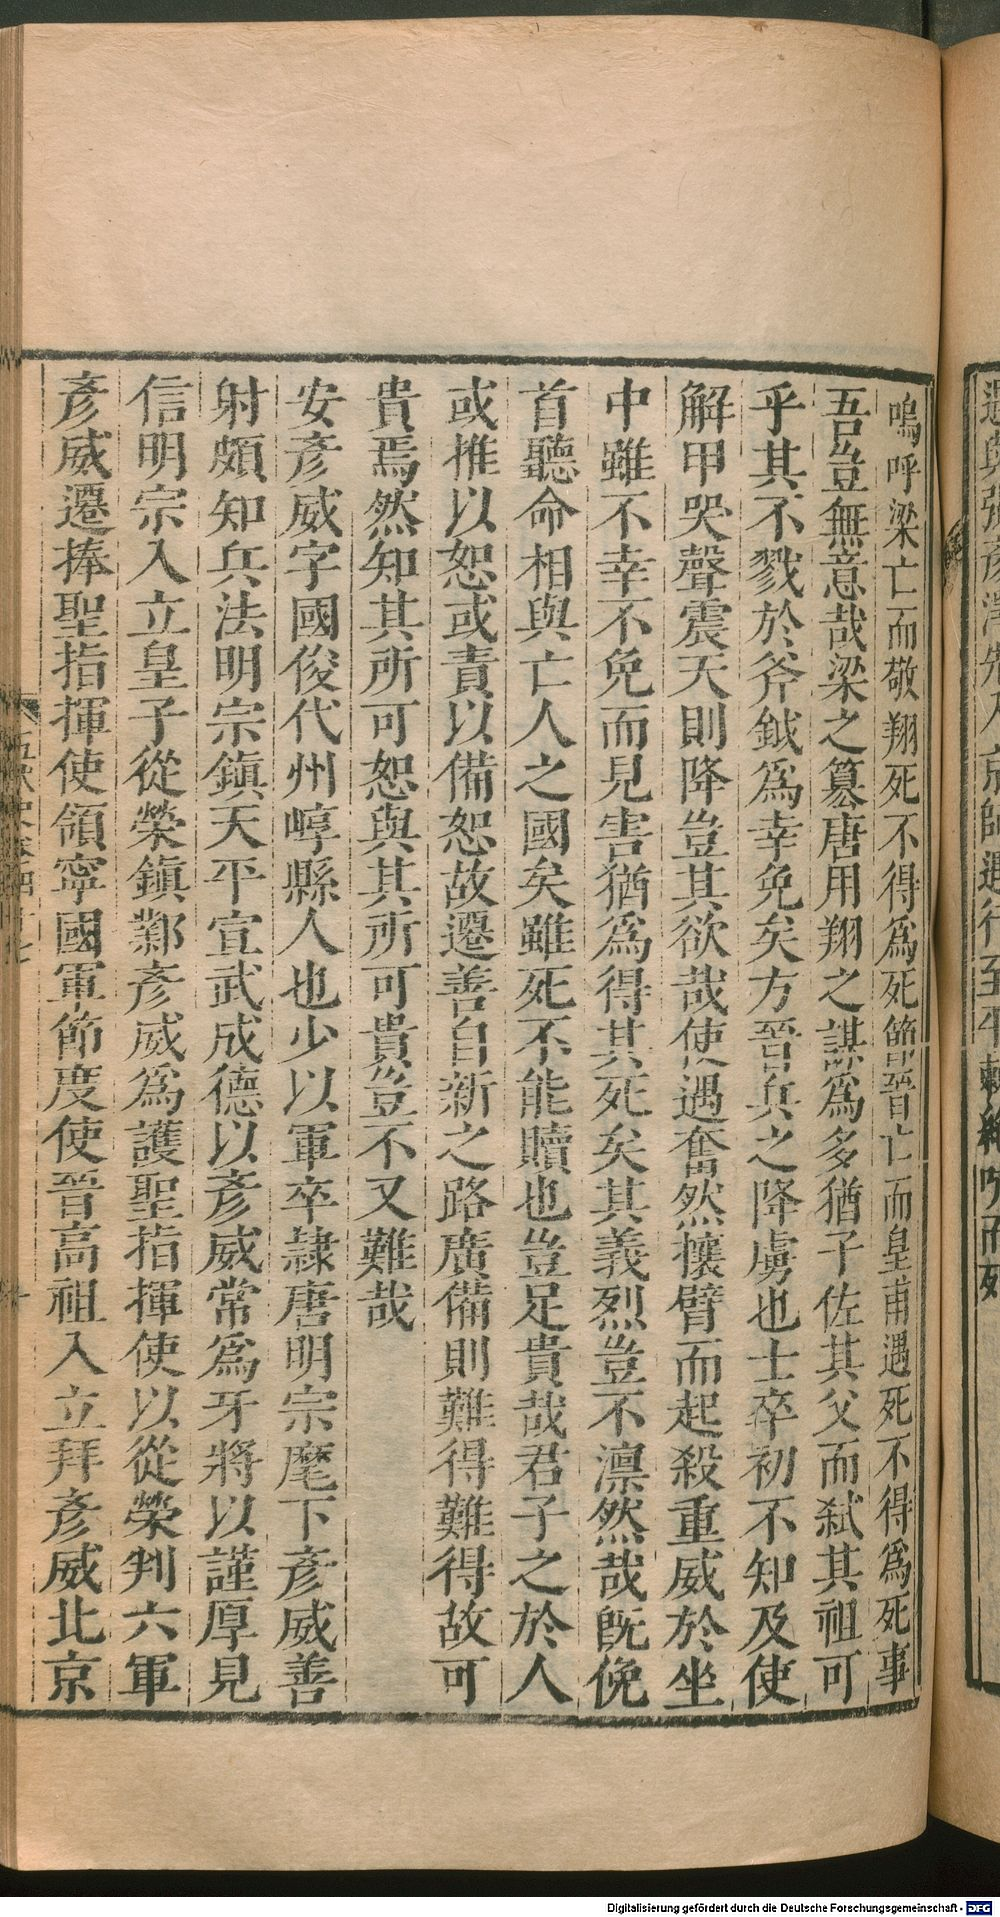 遇與張彥澤先入京師遇行至平棘絶吭而死
嗚呼梁亡而敬翔死不得爲死節晉亡而皇甫遇死不得爲死事
吾豈無意哉梁之篡唐用翔之謀爲多猶子佐其父而弑其祖可
乎其不戮於斧鉞爲幸免矣方晉兵之降虜也士卒初不知及使
解甲哭聲震天則降豈其欲哉使遇奮然攘臂而起殺重威於坐
中雖不幸不免而見害猶爲得其死矣其義烈豈不凛然哉旣俛
首聽命相與亡人之國矣雖死不能贖也豈足貴哉君子之於人
或推以恕或責以備恕故遷善自新之路廣備則難得難得故可
貴焉然知其所可恕與其所可貴豈不又難哉
安彥威字國俊代州崞縣人也少以軍卒隷唐明宗麾下彥威善
射頗知兵法明宗鎮天平宣武成德以彥威常爲牙將以謹厚見
信明宗入立皇子從榮鎮鄴彥威爲護聖指揮使以從榮判六軍
彥威遷捧聖指揮使領寧國軍節度使晉高祖入立拜彥威北京
Digitalisierung gefördert durch die Deutsche Forschungsgemeinschaft - DFG